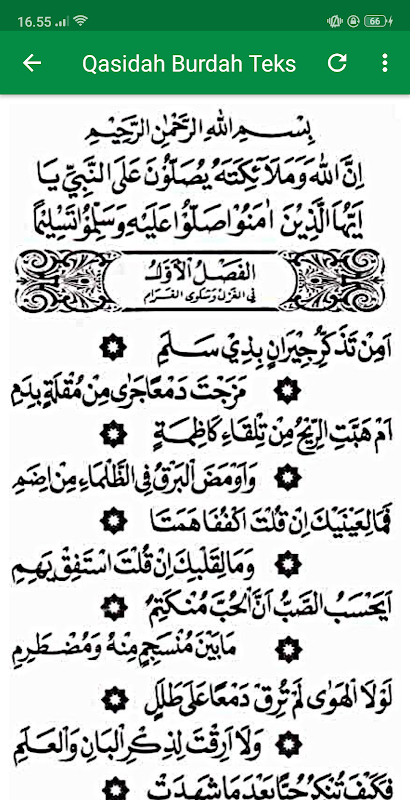 16.55
66
Qasidah Burdah Teks
بِسْمِ اللهِ الرَّحْمٰنِ الرَّحِيْمِ
اِنَّ اللهَ وَمَلَآئِكَتَهُ يُصَلُّوْنَ عَلَى النَّبِيِّ يَا
اَيُّهَا الَّذِيْنَ اٰمَنُوْا صَلُّوْا عَلَيْهِ وَسَلِّمُوْا تَسْلِيْمًا
الفَصْلُ الْاَوَّلُ
فِي الغَزَلِ وَشَكْوَى الغَرَامِ
اَمِنْ تَذَكُّرِ جِيْرَانٍ بِذِيْ سَلَمِ
مَزَجْتَ دَمْعًا جَرٰى مِنْ مُقْلَةٍ بِدَمِ
اَمْ هَبَّتِ الرِّيْحُ مِنْ تِلْقَاءِ كَاظِمَةٍ
وَاَوْمَضَ الْبَرْقُ فِي الظَّلْمَاءِ مِنْ اِضَمِ
فَمَا لِعَيْنَيْكَ اِنْ قُلْتَ اكْفُفَا هَمَتَا
وَمَا لِقَلْبِكَ اِنْ قُلْتَ اسْتَفِقْ يَهِمِ
اَيَحْسَبُ الصَّبُّ اَنَّ الْحُبَّ مُنْكَتِمٌ
مَا بَيْنَ مُنْسَجِمٍ مِنْهُ وَمُضْطَرِمِ
لَوْلَا الْهَوٰى لَمْ تُرِقْ دَمْعًا عَلٰى طَلَلٍ
وَلَا اَرِقْتَ لِذِكْرِ الْبَانِ وَالْعَلَمِ
فَكَيْفَ تُنْكِرُ حُبًّا بَعْدَ مَا شَهِدَتْ